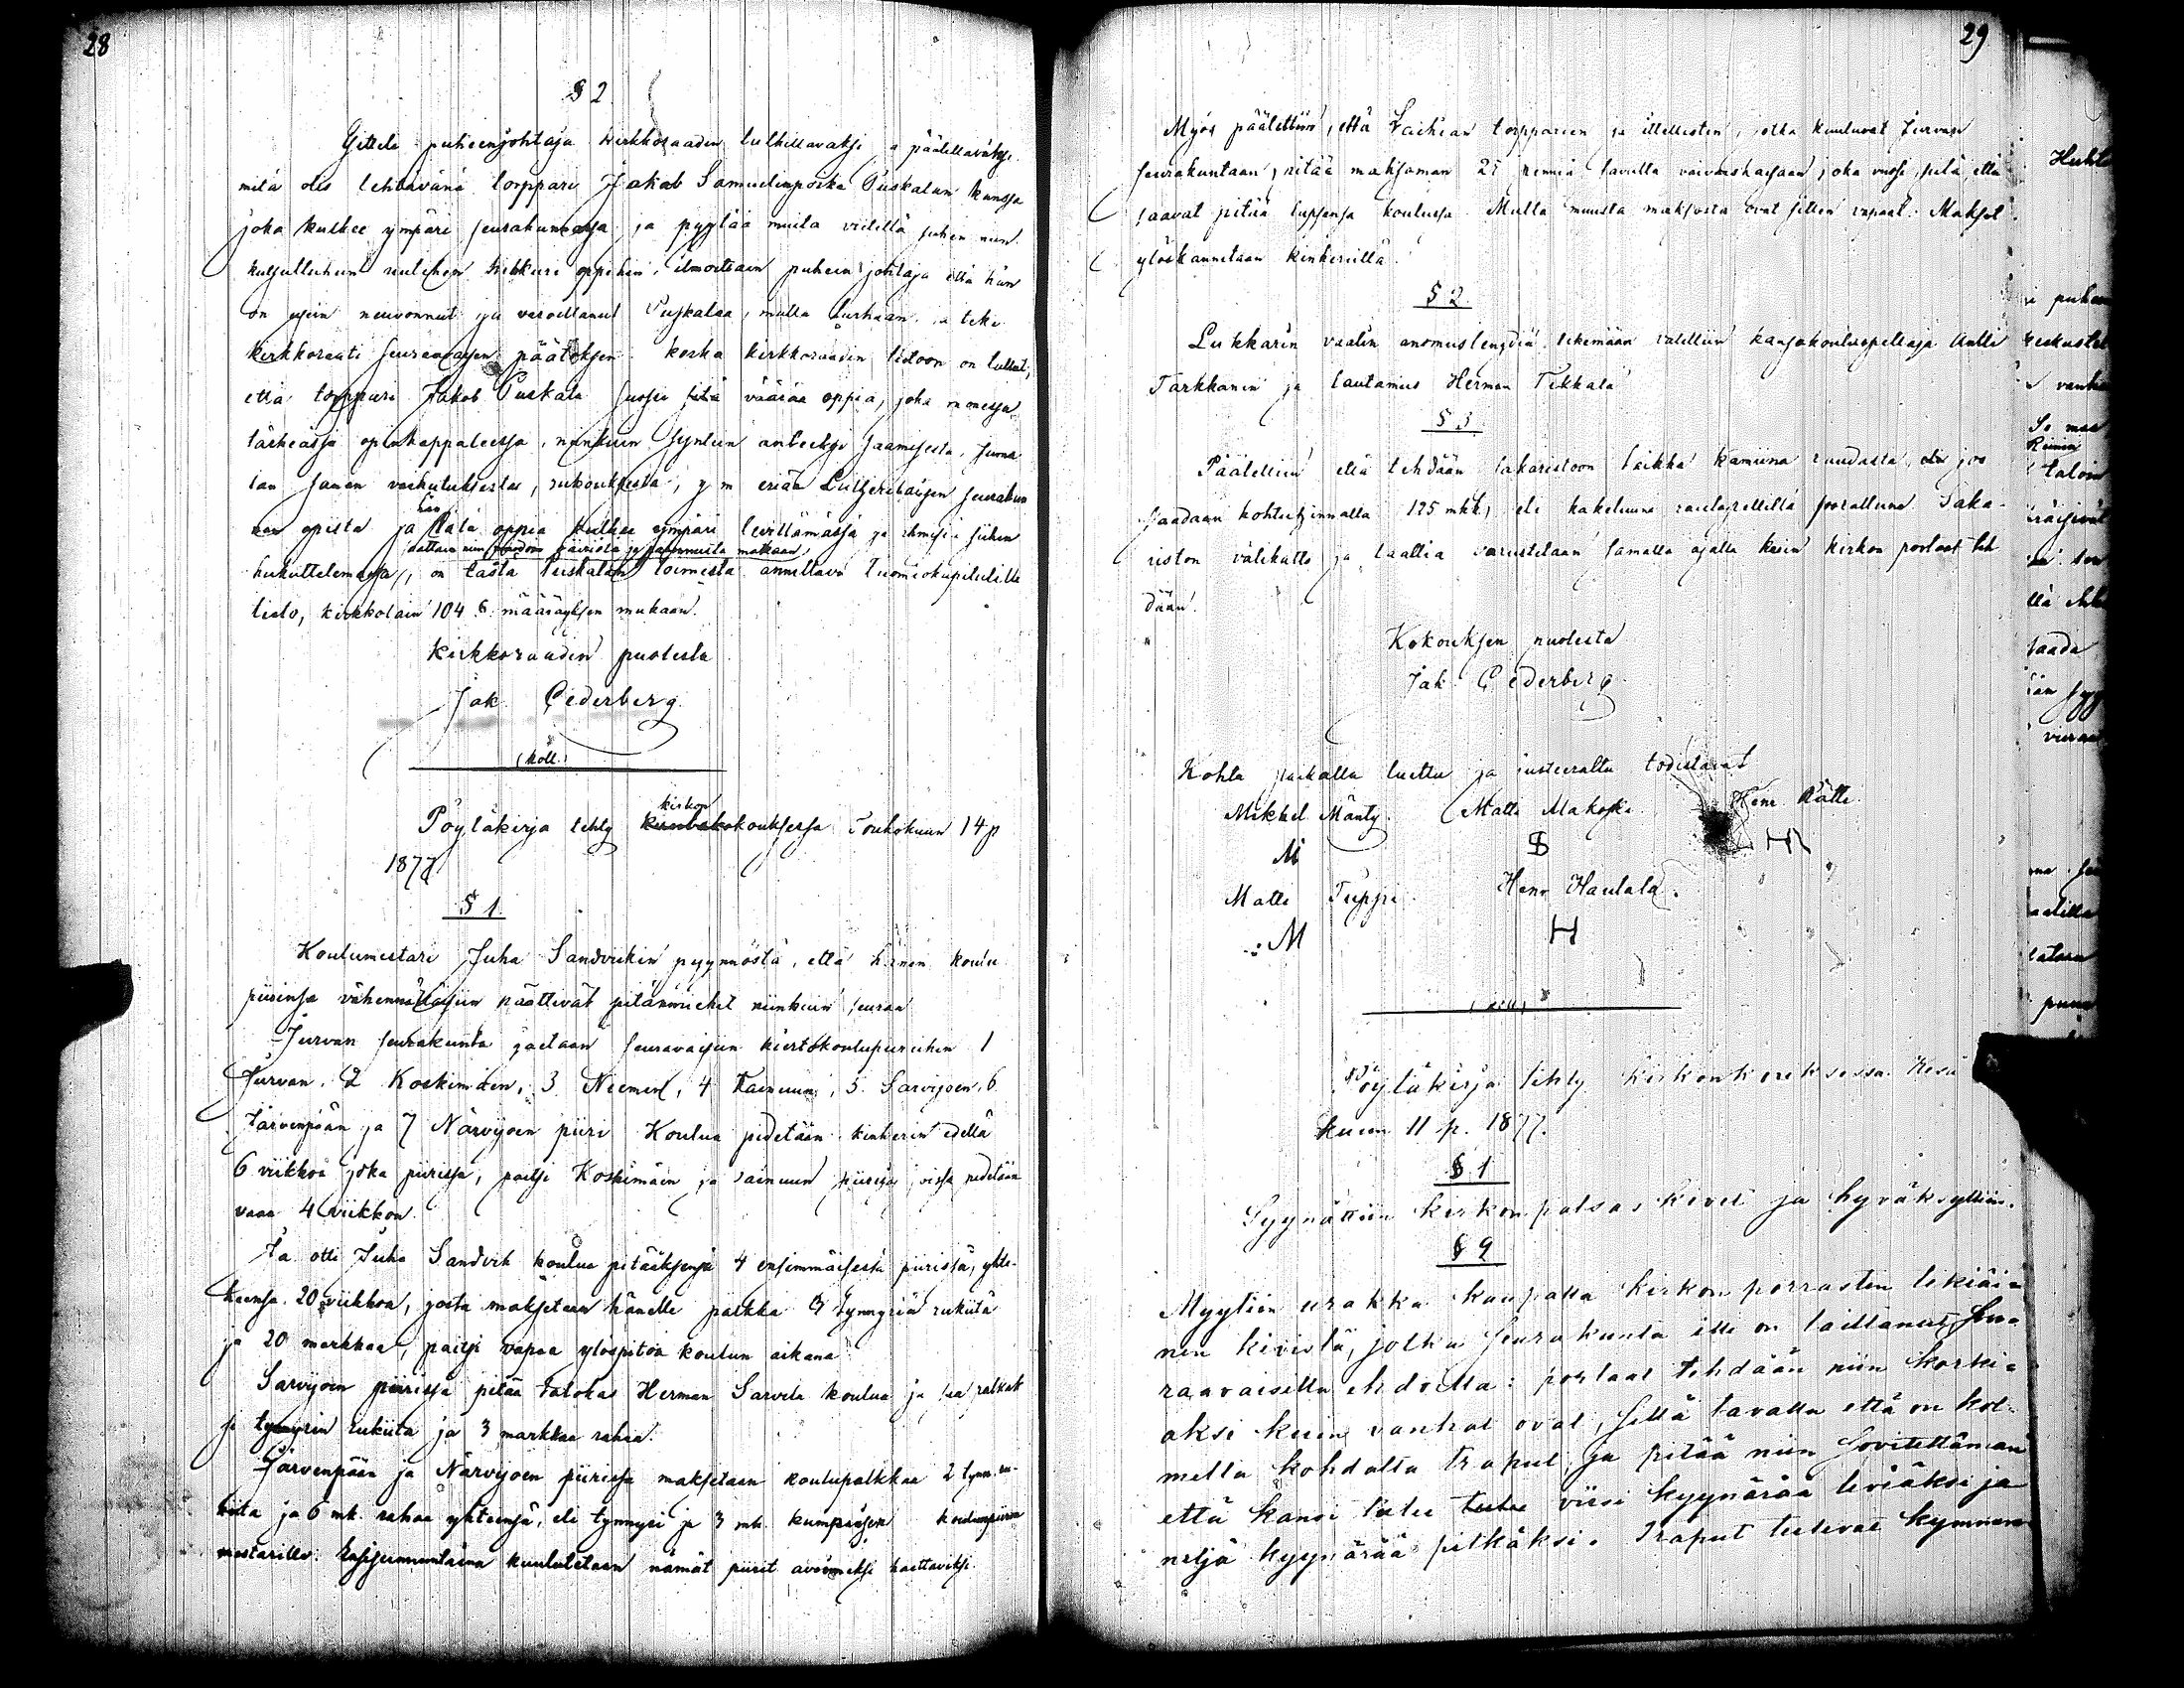 28
§ 2.
Esitteli puheenjohtaja kirkkoraadin tutkittavaksi ja päätettäväksi
mitä olis tehtävänä torppari Jakob Samuelinpoika Puskalan kanssa
joka kulkee ympäri seurakunnassa ja pyytää muita viitellä siihen niin
kutsuttuhun hihhuri oppihin, ilmoittain puheenjohtaja että hän
on usein neuvonnut ja varoittanut Puskalaa, mutta turhaan, ja teki
kirkkoraati seuraavaisen päätöksen: koska kirkkoraadin tietoon on tullut,
että torppari Jakob Puskala suosii sitä väärää oppia, joka monessa
tärkeässä opinkappaleessa, niinkuin syntein anteeksi saamisesta, Juma
lan sanan vaikutuksesta, rukouksesta, y m eriää Lutherilaisen seurakun
nan opista ja hän tätä oppia kulkee ympäri levittämässä ja ihmisiä siihen
hukuttelemassa, on tästä Puskalan toimesta annettava Tuomiokapitulille
tieto, kirkkolain 104 §. määräyksen mukaan.
Kirkkoraadin puolesta
Jak. Cederberg.
(koll.)
Pöytäkirja tehty kirkonkokouksessa Toukokuun 14 p
1877
§ 1.
Koulumestari Juha Sandvikin pyynnöstä, että hänen koulu
piirinsä vähennettäisiin päättivät pitäjänmiehet niinkuin seuraa
Jurvan seurakunta jaetaan seuraavaisiin kiertokoulupiireihin 1
Jurvan, 2 Koskimäen, 3. Niemen, 4 Kainuun, 5. Sarvijoen, 6.
Järvenpään ja 7 Närvijoen piiri Koulua pidetään kinkerin edellä
6 viikkoa joka piirissä, paitsi Koskimäen ja Kainuun piirissä joissa pidetään
vaan 4 viikkoa.
Ja otti Juha Sandvik koulua pitääksensä 4 ensimmäisessä piirissä, yhte-
hensä 20 viikkoa, josta maksetaan hänelle palkka tynnyriä rukiita
ja 20 markkaa, paitsi vapaa ylöspitoa koulun aikana
Sarvijoen piirissä pitää talokas Herman Sarvela koulua ja saa palkak
si tynnyrin rukiita ja 3 markkaa rahaa.
Järvenpään ja Närvijoen piirissä maksetaan koulupalkkaa 2 tynn. ru-
kiita ja 6 mk. rahaa yhteensä, eli tynnyri ja 3 mk. kumpaisen koulunpiirin
mestarille. kuulutetaan nämät piirit avoimeksi haettaviksi.
29
Myös päätettiin, että Laihian torpparien ja itellisten, jotka kuuluvat Jurvan
seurakuntaan, pitää maksaman 25 penniä savulta vaivaiskassaan joka vuosi, siitä, että
saavat pitää lapsensa koulussa. Mutta muusta maksosta ovat sitten vapaat. Maksot
ylöskannetaan kinkereillä.
§ 2.
Lukkarin vaalin anomuslengdiä tekemään valittiin kansakoulunopettaja Antti
Tarkkanen ja lautamies Herman Tikkala
§ 3
Päätettiin että tehdään sakaristoon taikka kamiina raudasta, jos
saadaan kohtuhinnalla 125 mkk, eli kakeluuni
riston välikatto ja laattia varustetaan samalla ajalla kuin kirkon portaat teh
dään.
Kokouksen puolesta
Jak Cederberg.
Kohta paikalla luettu ja justeeratta todistavat
Mikkel Mänty. Matti Makoski. Henr. Rätti.
M
Matti Tuppi. Henr Hautala.
M H
(koll)
Pöytäkirja tehty kirkonkokouksessa Kesä
kuun 11 p. 1877.
§ 1
Syynättiin kirkon patsas kivet ja hyväksyttiin.
§ 2
Myytiin urakka kaupalla kirkon porrasten tekiäi=
nen kivistä, jotka seurakunta itte on laittanut, seu=
raavaisilla ehdoilla: portaat tehdään niin korki=
aksi kuin vanhat ovat, sillä tavalla että on kol=
mella kohdalla traput, ja pitää niin sovitettäman
että kansi tulee viisi kyynärää leviäksi ja
neljä kyynärää pitkäksi. Traput tulevat kymmenen